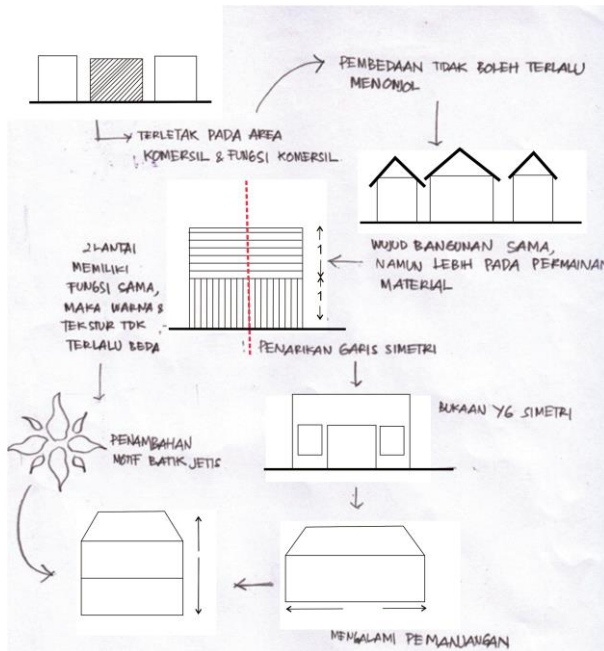 PEMBEDAAN TIDAK BOLEH TERLALU
MENONJOL
TERLETAK PADA AREA
KOMERSIL & FUNGSI KOMERSIL
2 LANTAI
MEMILIKI
FUNGSI SAMA,
MAKA WARNA &
TEKSTUR TDK
TERLALU BEDA
1
1
WUJUD BANGUNAN SAMA,
NAMUN LEBIH PADA PERMAINAN
MATERIAL
PENARIKAN GARIS SIMETRI
BUKAAN YG SIMETRI
PENAMBAHAN
MOTIF BATIK JETIS
MENGALAMI PEMANJANGAN